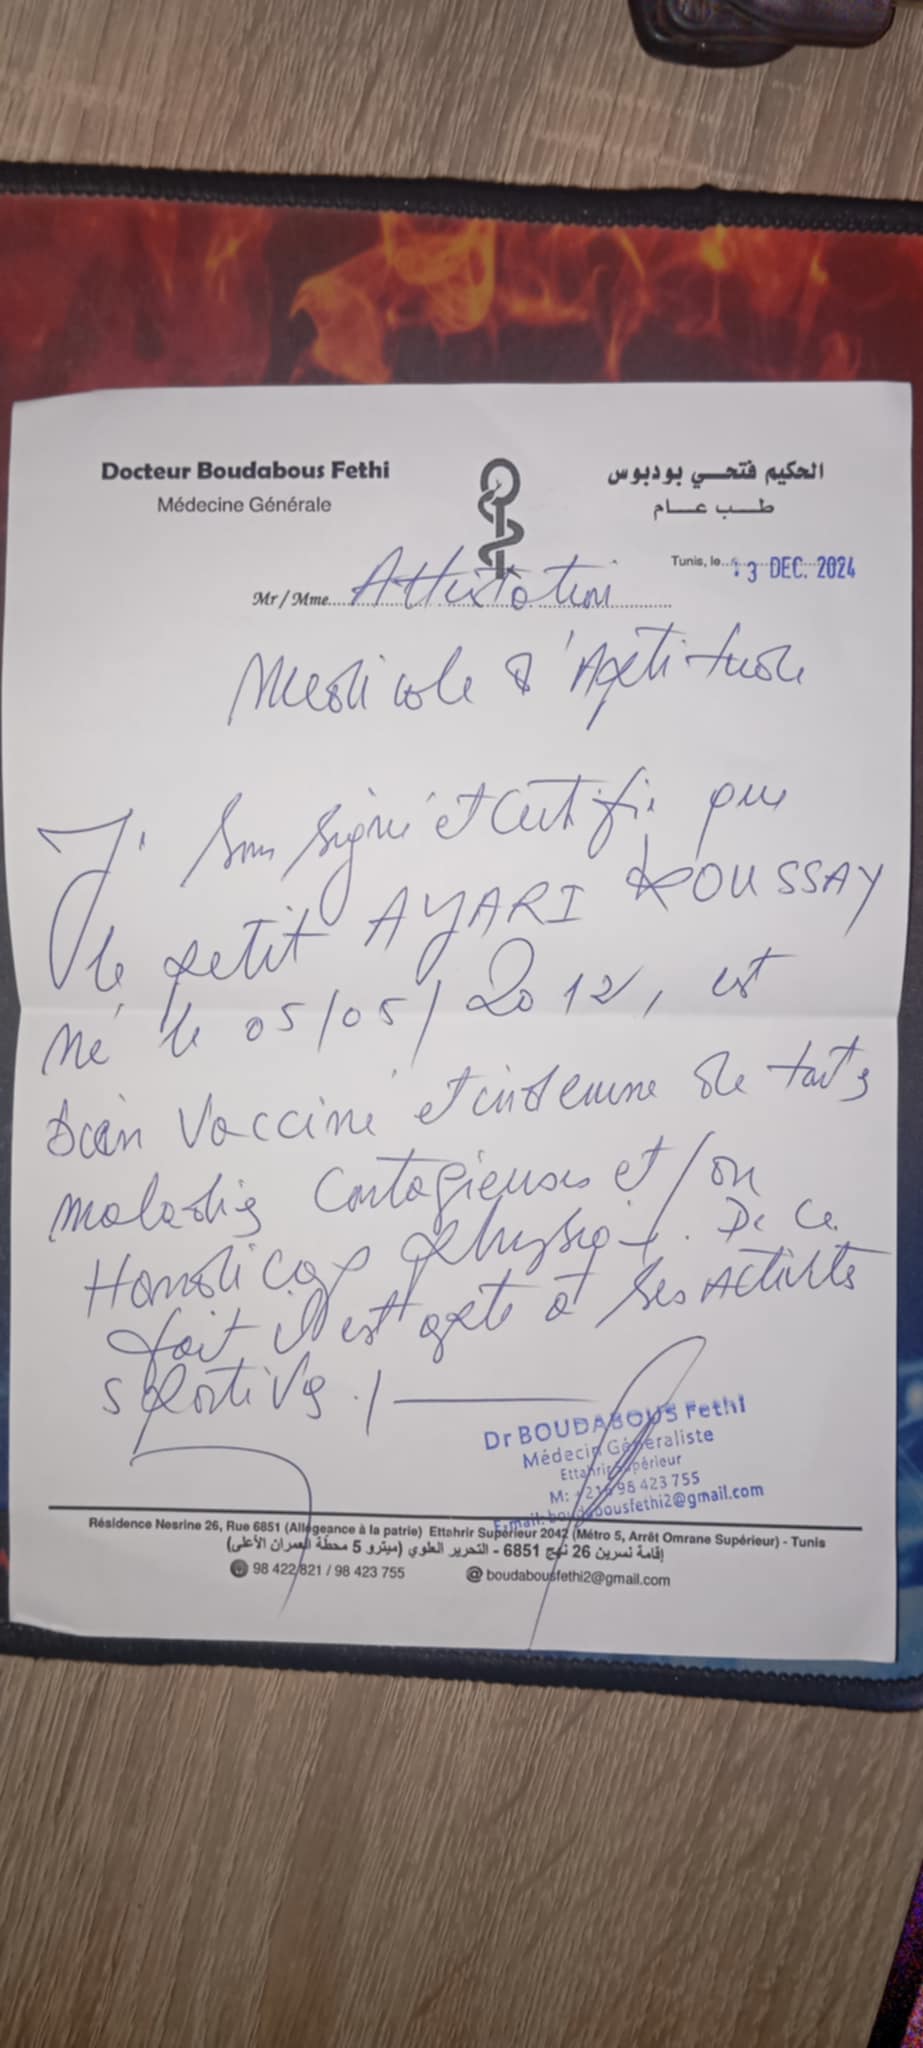 Docteur Boudabous Fethi
Médecine Générale
الحكيم فتحي بودبوس
طب عام
Tunis, le 13 DEC. 2024
Mr / Mme Attestation
Médicale d'Aptitude
J' soussigné et certifie que
le petit AYARI KOUSSAY
né le 05/05/2012, est
bien vacciné et indemne de toutes
maladies contagieuses et/ou
Handicap physique. De ce
fait il est apte à ses activités
sportives ./
Dr BOUDABOUS Fethi
Médecin Généraliste
Ettahrir Supérieur
M: +216 98 423 755
E-mail: boudabousfethi2@gmail.com
Résidence Nesrine 26, Rue 6851 (Allégeance à la patrie) Ettahrir Supérieur 2042 (Métro 5, Arrêt Omrane Supérieur) - Tunis
إقامة نسرين 26 نهج 6851 - التحرير العلوي (ميترو 5 محطة العمران الأعلى)
98 422 821 / 98 423 755
@ boudabousfethi2@gmail.com